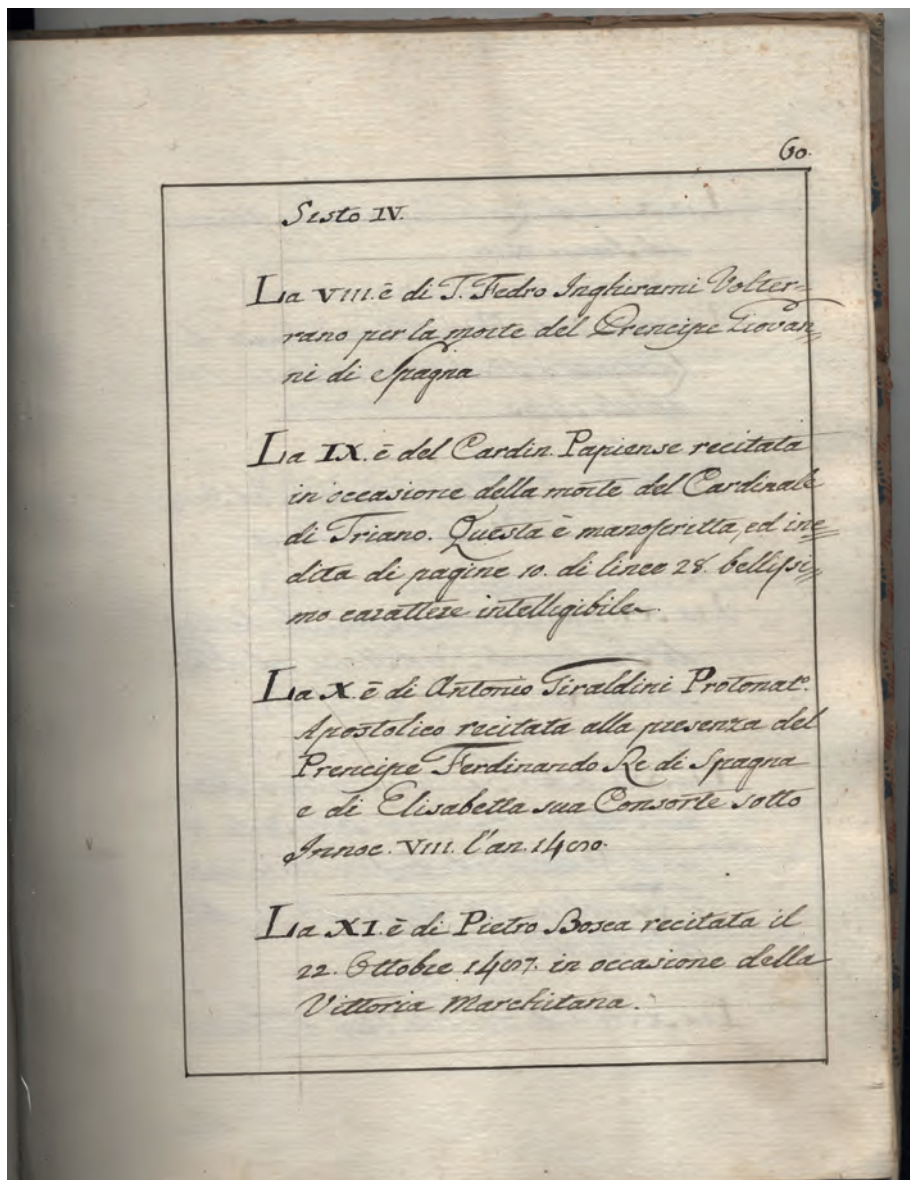 60.
Sisto IV.
La VIII. è di T. Fedro Inghirami Volter=
rano per la morte del Prencipe Giovan=
ni di Spagna
La IX. è del Cardin. Papiense recitata
in occasione della morte del Cardinale
di Triano. Questa è manoscritta, ed ine=
dita di pagine 10. di linee 28. bellissi=
mo carattere intelligibile.
La X. è di Antonio Giraldini Protonat.º
Apostolico recitata alla presenza del
Prencipe Ferdinando Re di Spagna
e di Elisabetta sua Consorte sotto
Innoc. VIII. l'an. 1480.
La XI. è di Pietro Bosca recitata il
22. Ottobre 1487. in occasione della
Vittoria Marchitana.